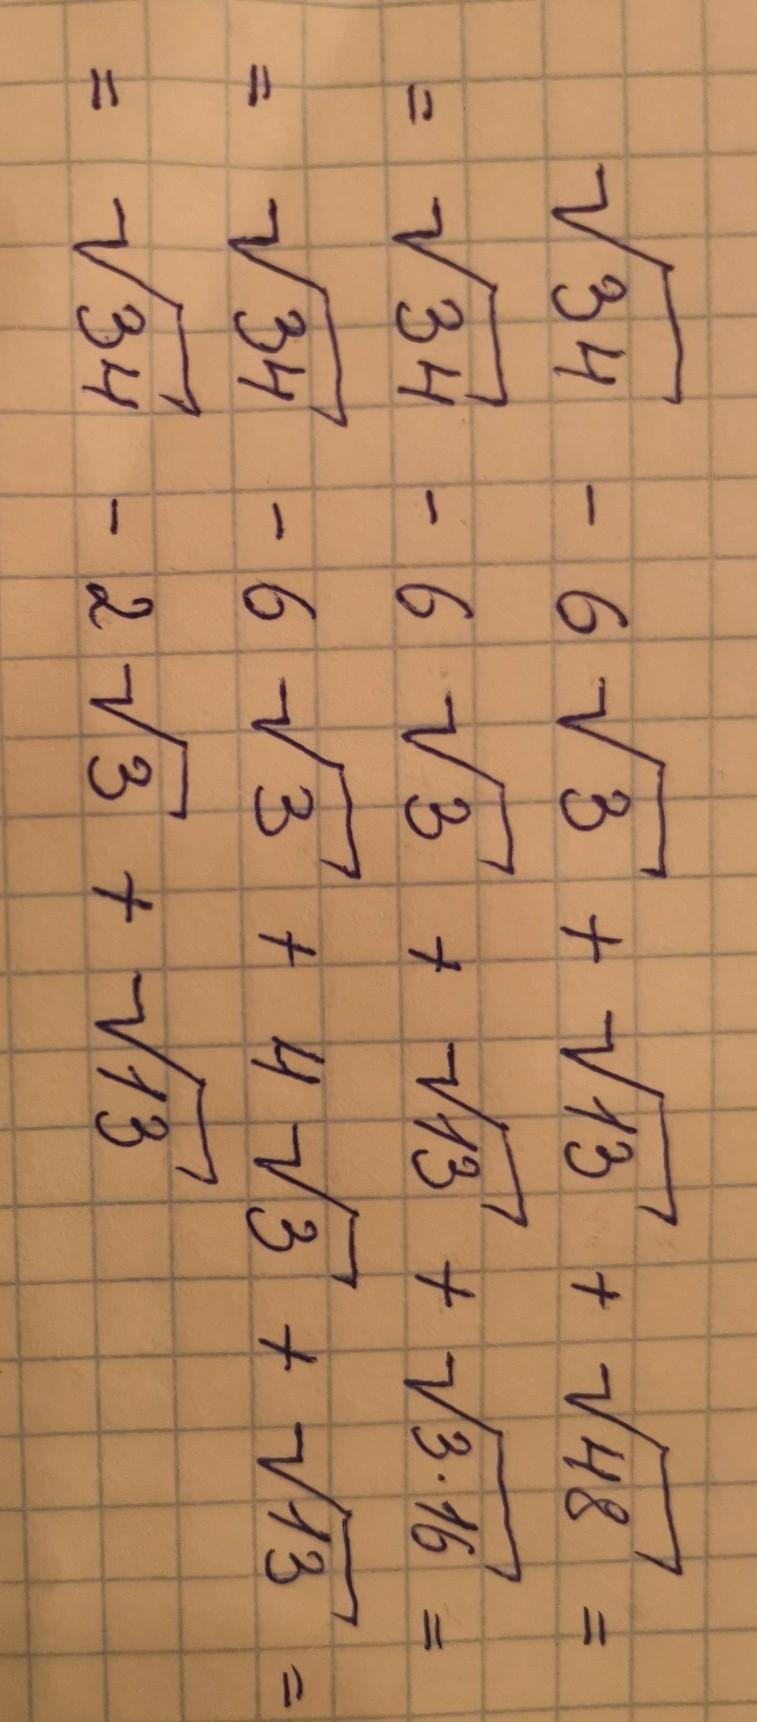 √34 - 6√3 + √13 + √48 =
= √34 - 6√3 + √13 + √3·16 =
= √34 - 6√3 + 4√3 + √13 =
= √34 - 2√3 + √13